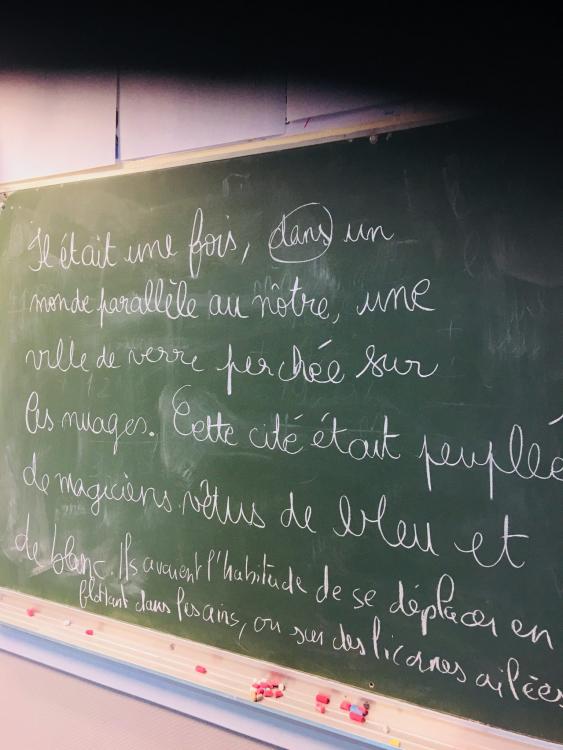 Il était une fois, dans un
monde parallèle au nôtre, une
ville de verre perchée sur
les nuages. Cette cité était peuplée
de magiciens vêtus de bleu et
de blanc. Ils avaient l'habitude de se déplacer en
flottant dans les airs, ou sur des licornes ailées